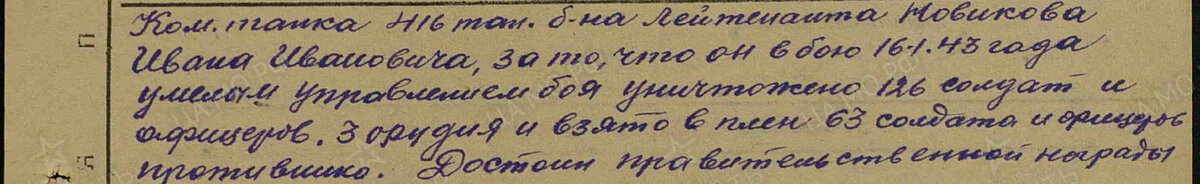 Ком. танка 416 тан. б-на Лейтенанта Новикова
Ивана Ивановича, за то, что он в бою 16.1.43 года
умелым управлением боя уничтожено 126 солдат и
офицеров. 3 орудия и взято в плен 63 солдата и офицеров
противника. Достоин правительственной награды